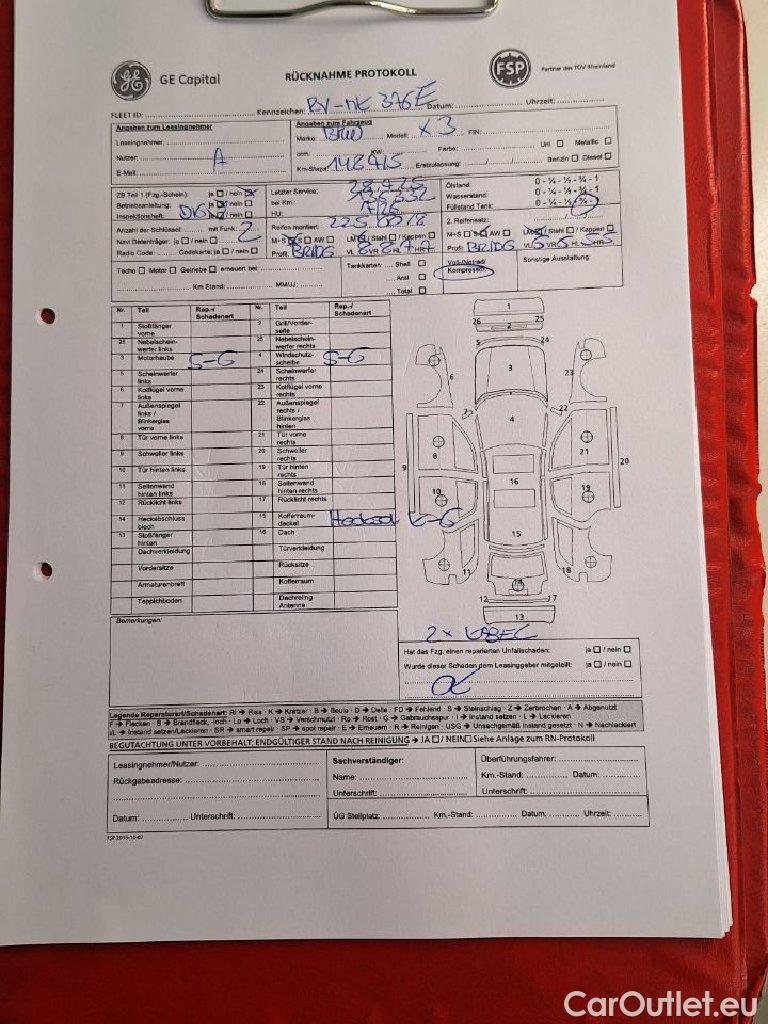 GE Capital
RÜCKNAHME PROTOKOLL
FSP
Partner des TÜV Rheinland
FLEET ID: Kennzeichen: Datum: Uhrzeit:
Angaben zum Leasingnehmer
Leasingnehmer:
Nutzer: A
E-Mail:
Angaben zum Fahrzeug
Marke: BMW Modell: X3 FIN:
ccm: KW: Farbe: Uni Metallic
Km-Stand: 148415 Erstzulassung: Benzin Diesel
ZB Teil 1 (Fzg.-Schein): ja / nein
Betriebsanleitung: ja / nein
Inspektionsheft:
Anzahl der Schlüssel: mit Funk: 2
Navi Datenträger: ja / nein
Radio Code: Codekarte: ja / nein
Letzter Service:
bei Km.:
HU:
Reifen montiert:
M+S S AW LM / Stahl / Kappen
Profil: BRIDG
Ölstand: 0 - ¼ - ½ - ¾ - 1
Wasserstand: 0 - ¼ - ½ - ¾ - 1
Füllstand Tank: 0 - ¼ - ½ - ¾ - 1
2. Reifensatz:
M+S S AW LM / Stahl / Kappen
Profil: BRIDG
Techo Motor Getriebe erneuert bei
Km Stand: MM/JJ:
Tankkarten: Shell
Aral
Total
Voll-/Notrad/
Kompressor
Sonstige Ausstattung:
Nr. Teil Rep.-/Schadenart Nr. Teil Rep.-/Schadenart
1 Stoßfänger vorne 2 Grill/Vorderseite
26 Nebelscheinwerfer links 25 Nebelscheinwerfer rechts
3 Motorhaube S-G 4 Windschutzscheibe S-G
5 Scheinwerfer links 24 Scheinwerfer rechts
6 Kotflügel vorne links 23 Kotflügel vorne rechts
7 Außenspiegel links / Blinkerglas vorne 22 Außenspiegel rechts / Blinkerglas hinten
8 Tür vorne links 21 Tür vorne rechts
9 Schweller links 20 Schweller rechts
10 Tür hinten links 19 Tür hinten rechts
11 Seitenwand hinten links 18 Seitenwand hinten rechts
12 Rücklicht links 17 Rücklicht rechts
14 Heckabschlussblech 15 Kofferraumdeckel
13 Stoßfänger hinten 16 Dach
Dachverkleidung Türverkleidung
Vordersitze Rücksitze
Armaturenbrett Kofferraum
Teppichboden Dachreling Antenne
1
26 25
2
5 24
3
6 23
7 22
4
8 21
9 20
16
10 19
15
11 18
14
12 17
13
Bemerkungen:
2x KABEL
Hat das Fzg. einen reparierten Unfallschaden: ja / nein
Wurde dieser Schaden dem Leasinggeber mitgeteilt: ja / nein
Legende Reparaturart/Schadenart: RI → Riss · K → Kratzer · B → Beule · D → Delle · FD → Fehlend · S → Steinschlag · Z → Zerbrochen · A → Abgenutzt
F → Flecken · B → Brandfleck, -loch · Lo → Loch · V-S → Verschmutzt · Ro → Rost · G → Gebrauchsspur · I → Instand setzen · L → Lackieren
I/L → Instand setzen/Lackieren · SR → smart repair · SP → spot repair · E → Erneuern · R → Reinigen · USG → Unsachgemäß. Instand gesetzt · N → Nachlackiert
BEGUTACHTUNG UNTER VORBEHALT, ENDGÜLTIGER STAND NACH REINIGUNG → JA / NEIN Siehe Anlage zum RN-Protokoll
Leasingnehmer/Nutzer:
Rückgabeadresse:
Datum: Unterschrift:
Sachverständiger:
Name:
Unterschrift:
Überführungsfahrer:
Km.-Stand: Datum:
Unterschrift:
ÜG Stellplatz: Km.-Stand: Datum: /Uhrzeit:
FSP 2015-10-07
CarOutlet.eu